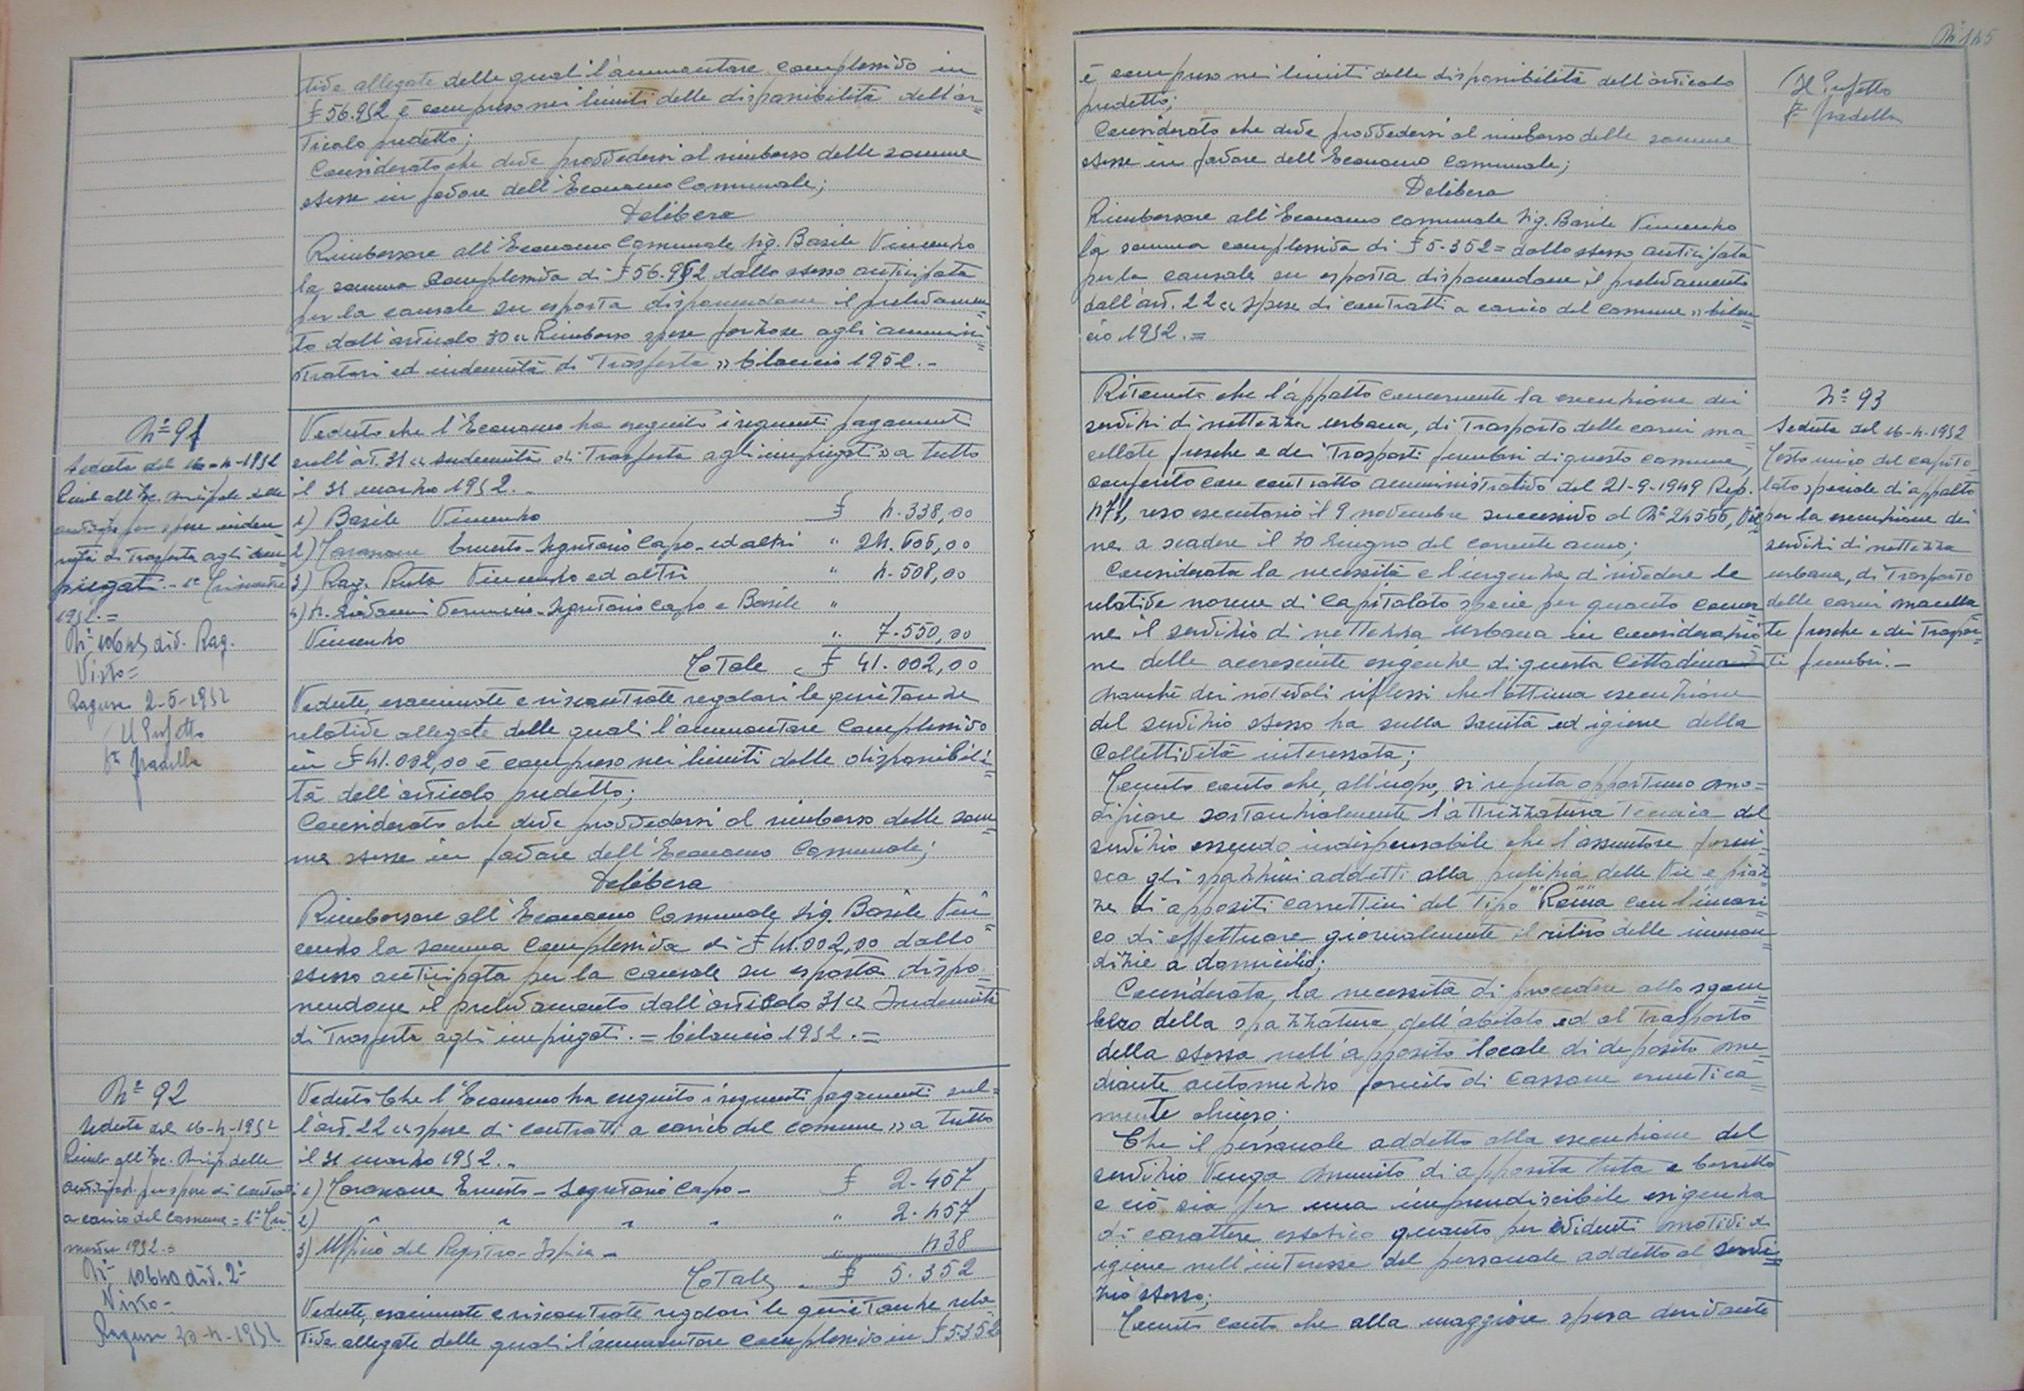 tive allegate delle quali l'ammontare complessivo in
£ 56.952 è compreso nei limiti delle disponibilità dell'ar=
ticolo predetto;
Considerato che deve provvedersi al rimborso delle somme
stesse in favore dell'Economo Comunale;
Delibera
Rimborsare all'Economo Comunale Sig. Basile Vincenzo
la somma complessiva di £ 56.952 dallo stesso anticipata
per la causale su esposta disponendone il prelevamen=
to dall'articolo 30 "Rimborso spese forzose agli ammini=
stratori ed indennità di Trasferta" bilancio 1952.-
N° 91
Seduta del 16-4-1952
Rimb. all'Ec. Municipale delle
anticip. per spese inden=
nità di Trasferta agli im=
piegati - 1° Trimestre
1952.=
N° 10645 div. Rag.
Visto=
Ragusa 2-5-1952
Il Prefetto
Fto Gradella
Veduto che l'Economo ha eseguito i seguenti pagamenti
sull'art. 31 "Indennità di Trasferta agli impiegati" a tutto
il 31 marzo 1952.-
1) Basile Vincenzo £ 4.338,00
2) Carassone Ernesto-Segretario Capo-ed altri " 24.606,00
3) Rag. Ruta Vincenzo ed altri " 4.508,00
Segretario Capo e Basile "
Vincenzo " 7.550,00
Totale £ 41.002,00
Vedute, esaminate e riscontrate regolari le quietanze
relative allegate delle quali l'ammontare complessivo
in £ 41.002,00 è compreso nei limiti delle disponibili=
tà dell'articolo predetto;
Considerato che deve provvedersi al rimborso delle som=
me stesse in favore dell'Economo Comunale;
Delibera
Rimborsare all'Economo Comunale Sig. Basile Vin=
cenzo la somma complessiva di £ 41.002,00 dallo
stesso anticipata per la causale su esposta dispo=
nendone il prelevamento dall'articolo 31 "Indennità
di Trasferta agli impiegati.= bilancio 1952.=
N° 92
Seduta del 16-4-1952
Rimb. all'Ec. Municip. delle
anticipaz. per spese di contratti
a carico del Comune = 1° Tri=
mestre 1952.=
N° 10640 div. 2ª
Visto-
Ragusa 30-4-1952
Veduto che l'Economo ha eseguito i seguenti pagamenti sul=
l'art. 22 "spese di contratti a carico del comune" a tutto
il 31 marzo 1952.-
1) Carassone Ernesto - Segretario Capo - £ 2.457
2) " " " " " 2.457
3) Ufficio del Registro - Ispica - " 438
Totale £ 5.352
Vedute, esaminate e riscontrate regolari le quietanze rela=
tive allegate delle quali l'ammontare complessivo in £ 5352
N° 145
è compreso nei limiti delle disponibilità dell'articolo
predetto;
Considerato che deve provvedersi al rimborso delle somme
stesse in favore dell'Economo Comunale;
Delibera
Rimborsare all'Economo comunale Sig. Basile Vincenzo
la somma complessiva di £ 5.352= dallo stesso anticipata
per la causale su esposta disponendone il prelevamento
dall'art. 22 "Spese di contratti a carico del Comune" bilan=
cio 1952.=
Il Prefetto
F° Gradella
Ritenuto che l'appalto concernente la esecuzione dei
servizi di nettezza urbana, di Trasporto delle carni ma=
cellate fresche e dei Trasporti funebri di questo comune,
conferito con contratto amministrativo del 21-9-1949 Rep.
471, reso esecutorio il 9 novembre successivo al N° 24555, vie=
ne a scadere il 30 Giugno del corrente anno;
Considerata la necessità e l'urgenza di rivedere le
relative norme di Capitolato specie per quanto concer=
ne il servizio di nettezza urbana in considerazio=
ne delle accresciute esigenze di questa Cittadina
nonché dei notevoli riflessi che l'ottima esecuzione
del servizio stesso ha sulla sanità ed igiene della
Collettività interessata;
Tenuto conto che, all'uopo, si reputa opportuno mo=
dificare sostanzialmente l'attrezzatura Tecnica del
servizio essendo indispensabile che l'assuntore forni=
sca gli spazzini addetti alla pulizia delle vie e piaz=
ze di appositi carrettini del Tipo "Roma" con l'incari=
co di effettuare giornalmente il ritiro delle immon=
dizie a domicilio;
Considerata, la necessità di procedere allo sgom=
bero della spazzatura dell'abitato ed al Trasporto
della stessa nell'apposito locale di deposito me=
diante automezzo fornito di cassone ermetica=
mente chiuso;
Che il personale addetto alla esecuzione del
servizio venga munito di apposita tuta e berretto
e ciò sia per una imprendiscibile esigenza
di carattere estetico quanto per evidenti motivi di
igiene nell'interesse del personale addetto al servi=
zio stesso;
Tenuto conto che alla maggiore spesa derivante
N° 93
Seduta del 16-4-1952
Testo unico del capito=
lato speciale di appalto
per la esecuzione dei
servizi di nettezza
urbana, di Trasporto
delle carni macella=
te fresche e dei Traspor=
ti funebri.-